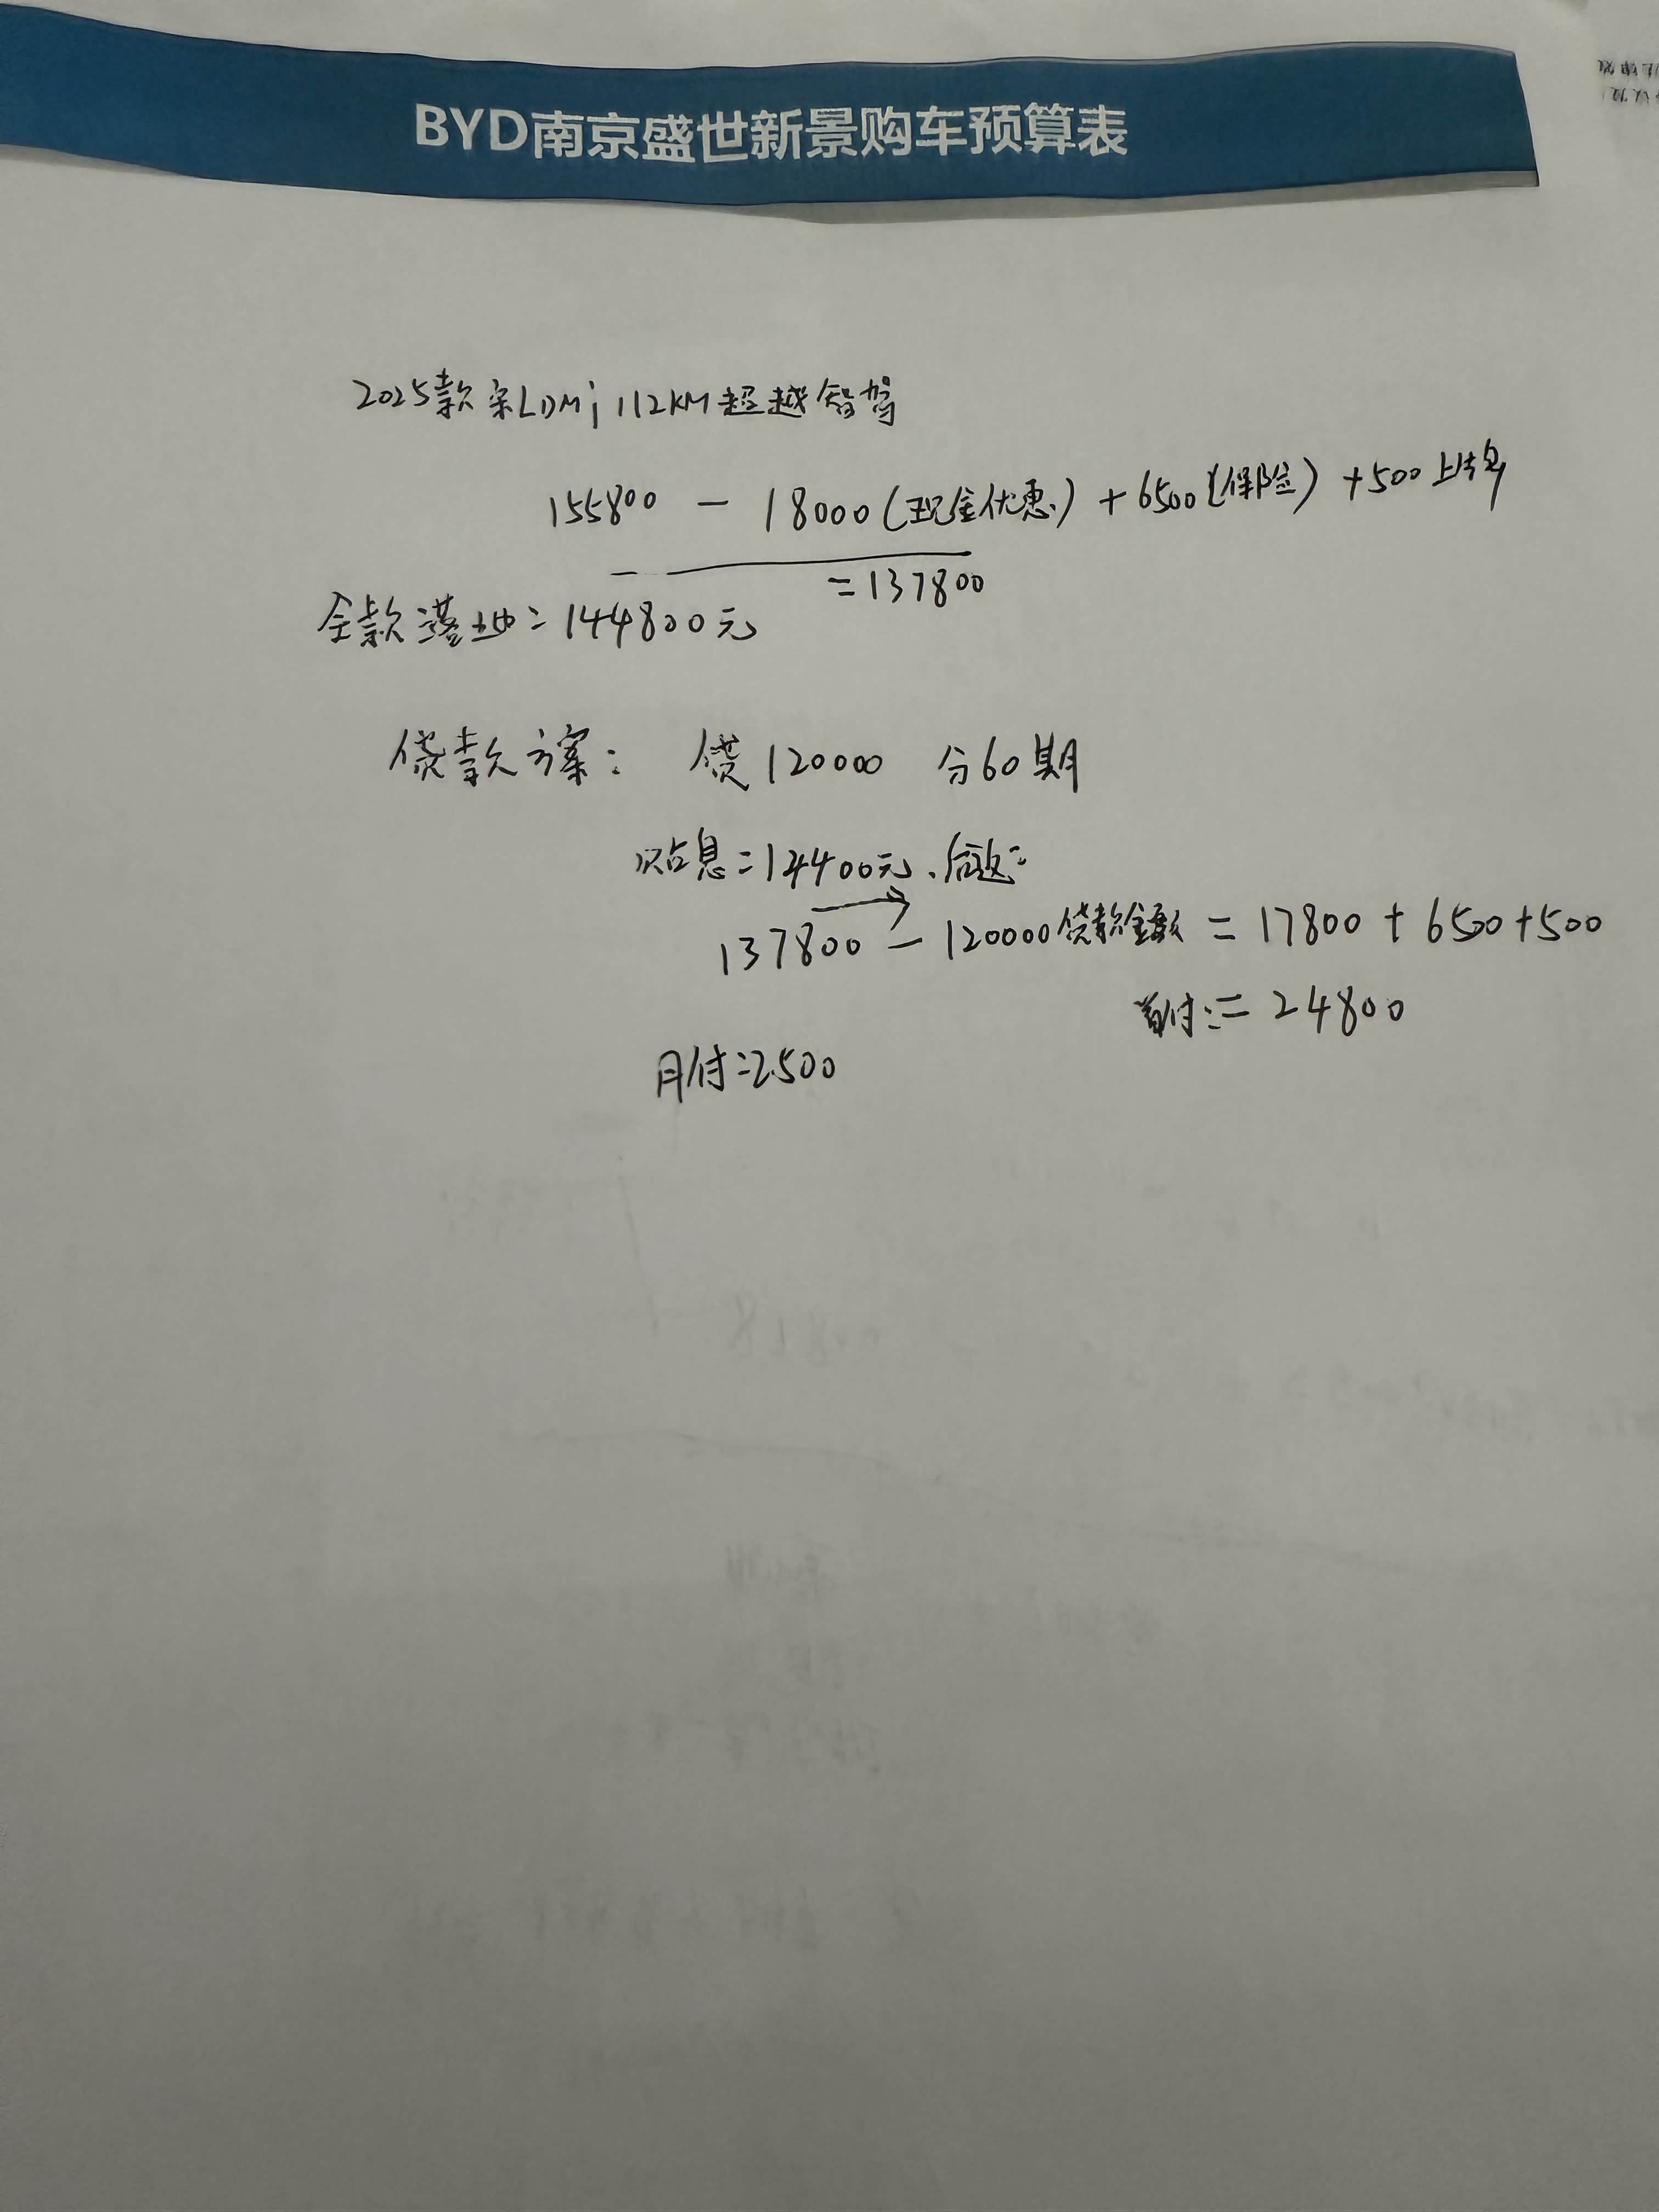 BYD南京盛世新景购车预算表
2025款宋LDMi 112KM超越智驾
155800 - 18000(现金优惠) + 6500(保险) + 500上牌
= 137800
全款落地= 144800元
贷款方案: 贷120000 分60期
贴息=14400元、后返=
137800 - 120000贷款金额 = 17800 + 6500+500
首付:= 24800
月付=2500